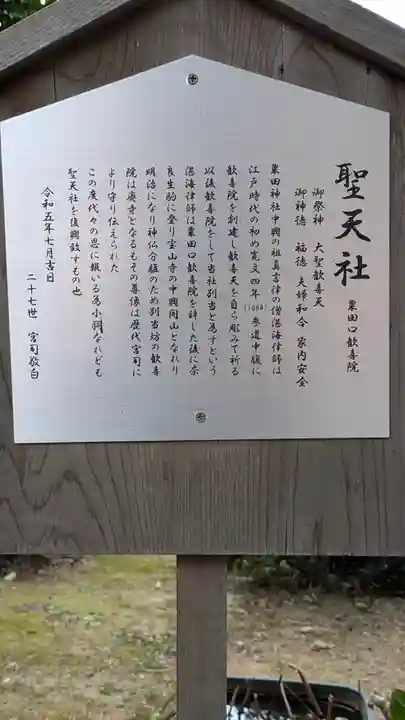 聖天社
粟田口歓喜院
御祭神 大聖歓喜天
御神徳 福徳 夫婦和合 家内安全
粟田神社中興の祖真言律の僧湛海律師は
江戸時代の初め寛文四年(1664)参道中腹に
歓喜院を創建し歓喜天を自ら彫みて祈る
以後歓喜院をして当社別当と為すという
湛海律師は粟田口歓喜院を辞した後に奈
良生駒に登り宝山寺の中興開山となれり
明治になり神仏分離のため別当坊の歓喜
院は廃寺となるもその尊像は歴代宮司に
より守り伝えられた
この度代々の恩に報いる為小祠なれども
聖天社を復興致すもの也
令和五年七月吉日
二十七世 宮司敬白